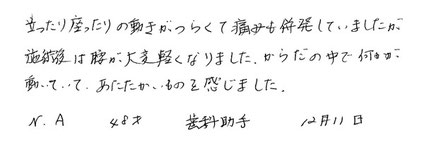 立ったり座ったりの動きがつらくて痛みも併発していましたが
施術後は腰が大変軽くなりました。からだの中で何かが
動いていて、あたたかいものを感じました。
N. A 48才 歯科助手 12月11日